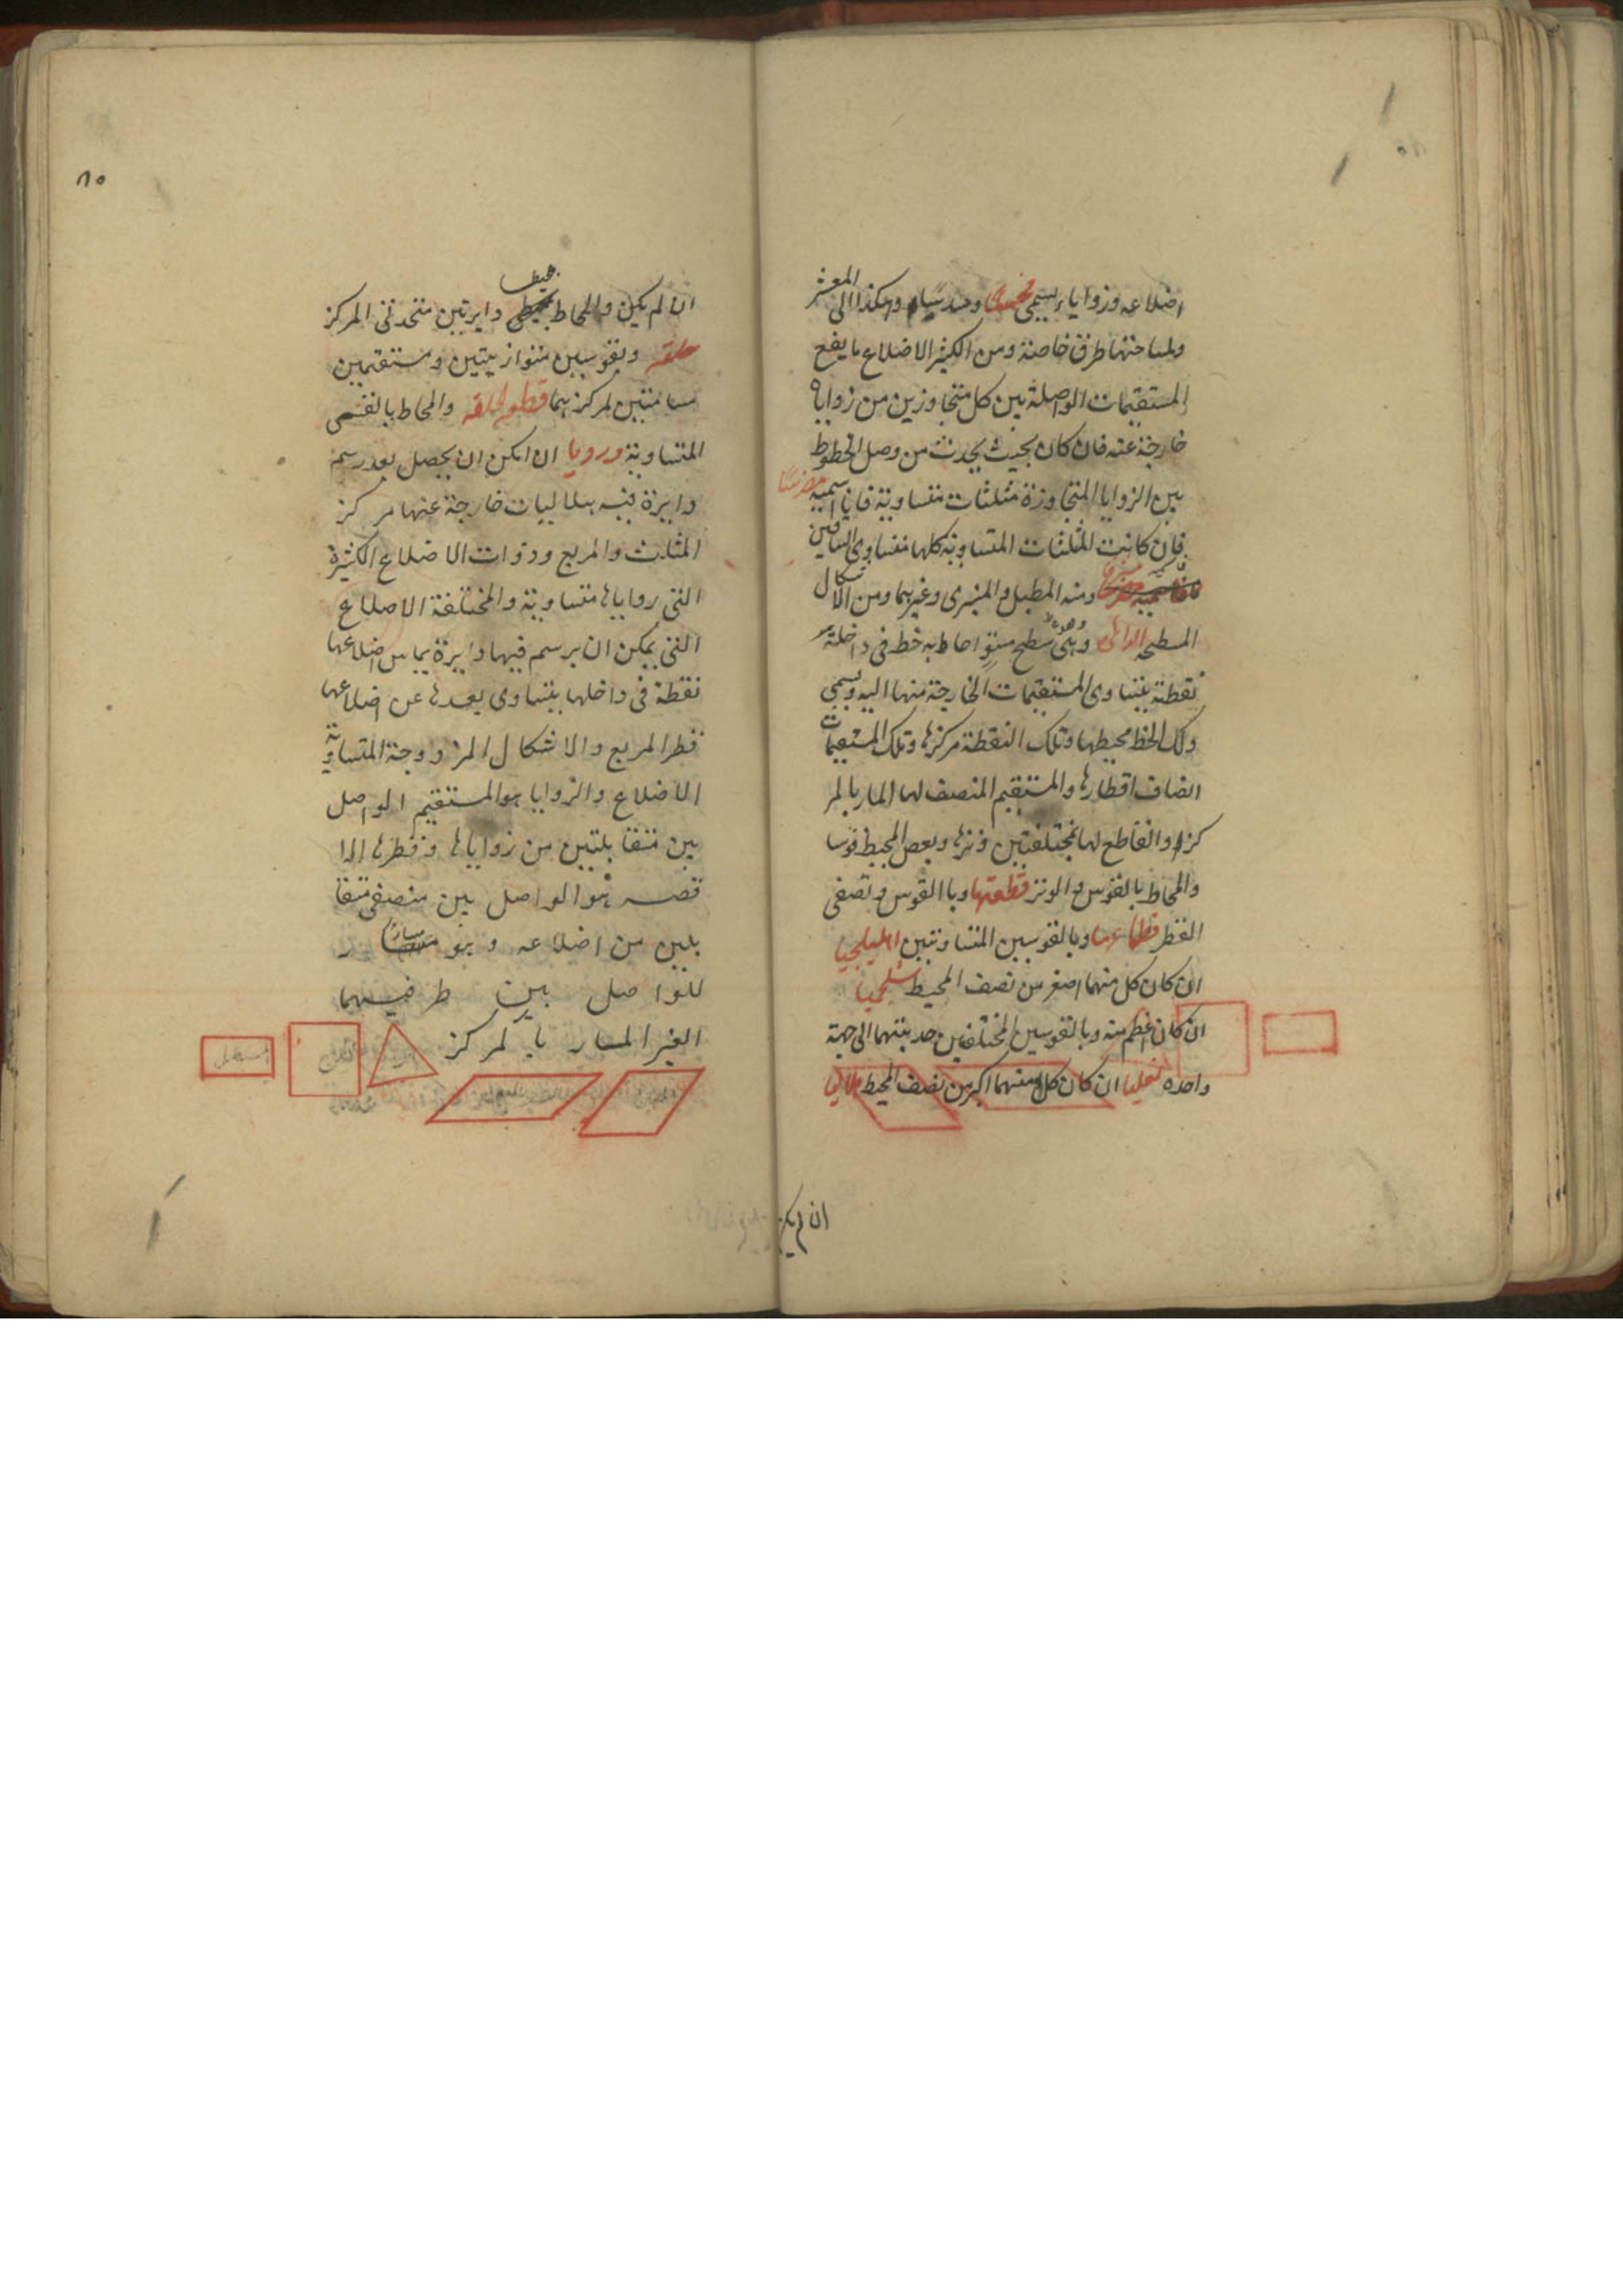 اضلاعه وزواياه يسمى مخمسا ومسدسا وهكذا الى المعشر
ولمساحتها طرق خاصة ومن الكثير الاضلاع ما يقع
المستقيمات الواصلة بين كل متجاوزين من زواياه
خارجة عنه فان كان بحيث يحدث من وصل الخطوط
بين الزوايا المتجاوزة مثلثات متساوية فانا اسميه مضرسا
فان كانت المثلثات المتساوية كلها متساوى الساقين
ومنه المطبل والمنبرى وغيرهما ومن الاشكال
المسطحة الدائرة وهى سطح مستو احاط به خط فى داخله
نقطة يتساوى المستقيمات الخارجة منها اليه ويسمى
ذلك الخط محيطها وتلك النقطة مركزها وتلك المستقيمات
انصاف اقطارها والمستقيم المنصف لها المار بالمر
كز والقاطع لها بمختلفتين وترها وبعض المحيط قوسا
والمحاط بالقوس والوتر قطعتها وبالقوس ونصفى
القطر قطاعها وبالقوسين المتساويتين اهليلجيا
ان كان كل منهما اصغر من نصف المحيط شلجميا
ان كان اعظم منه وبالقوسين المختلفين حدبتهما الى جهة
واحده نعليا ان كان كل منهما اكبر من نصف المحيط هلاليا
ان لم يكن
٨٥
ان لم يكن والمحاط بمحيطى دايرتين متحدتى المركز
حلقه وبقوسين متوازيتين ومستقيمين
مسامتين لمركزهما قطع حلقه والمحاط بالقسى
المتساوية ورديا ان امكن ان يحصل بعد رسم
دايرة فيه هلاليات خارجة عنها مركز
المثلث والمربع وذوات الاضلاع الكثيرة
التى زواياها متساوية والمختلفة الاضلاع
التى يمكن ان يرسم فيها دايرة يماس اضلاعها
نقطة فى داخلها يتساوى بعدها عن اضلاعها
قطر المربع والاشكال المزدوجة المتساوية
الاضلاع والزوايا هو المستقيم الواصل
بين متقابلتين من زواياها وقطرها الا
قصر هو الواصل بين منصفى متقا
بلين من اضلاعه وهو
للواصل بين طرفيهما
الغير المار بالمركز
مستطيل